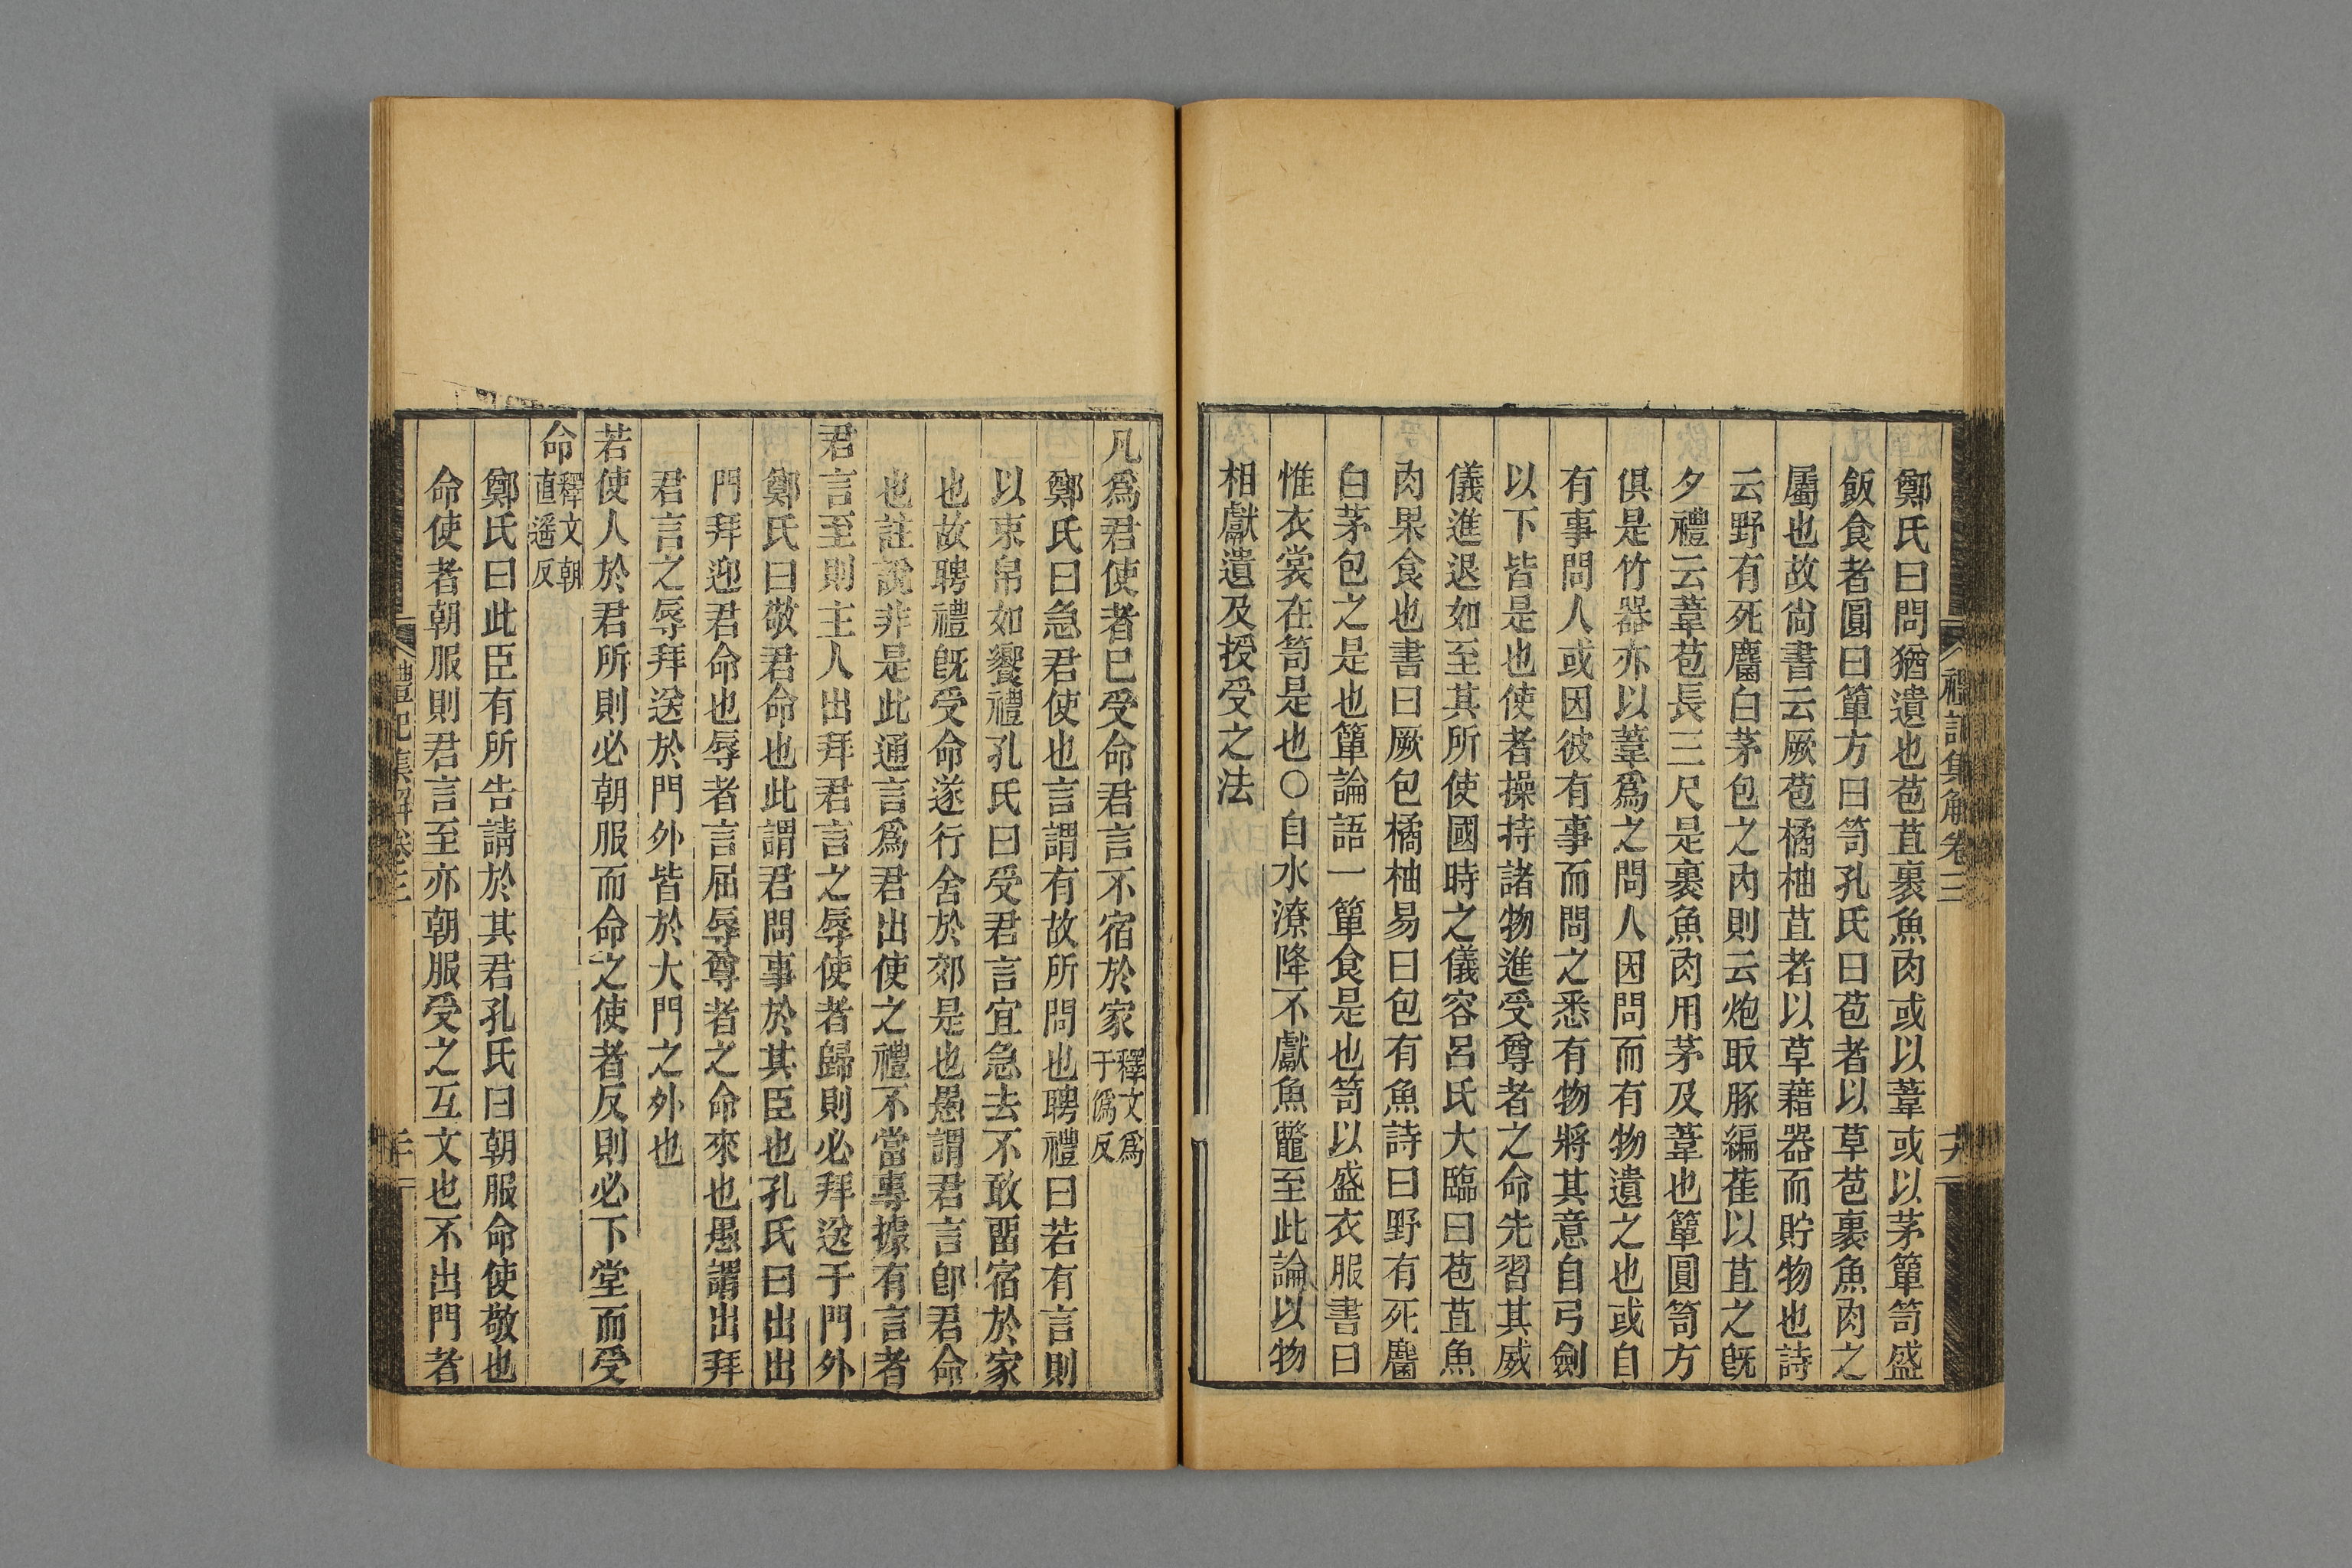 鄭氏曰問猶遺也苞苴裹魚肉或以葦或以茅簞笥盛
飯食者圓曰簞方曰笥孔氏曰苞者以草苞裹魚肉之
屬也故尙書云厥苞橘柚苴者以草藉器而貯物也詩
云野有死麕白茅包之內則云炮取豚編萑以苴之旣
夕禮云葦苞長三尺是裹魚肉用茅及葦也簞圓笥方
俱是竹器亦以葦爲之問人因問而有物遺之也或自
有事問人或因彼有事而問之悉有物將其意自弓劍
以下皆是也使者操持諸物進受尊者之命先習其威
儀進退如至其所使國時之儀容呂氏大臨曰苞苴魚
肉果食也書曰厥包橘柚易曰包有魚詩曰野有死麕
白茅包之是也簞論語一簞食是也笥以盛衣服書曰
惟衣裳在笥是也○自水潦降不獻魚鼈至此論以物
相獻遺及授受之法
禮記集解卷三
凡爲君使者已受命君言不宿於家釋文爲
于僞反
鄭氏曰急君使也言謂有故所問也聘禮曰若有言則
以束帛如饗禮孔氏曰受君言宜急去不敢畱宿於家
也故聘禮旣受命遂行舍於郊是也愚謂君言卽君命
也註說非是此通言爲君出使之禮不當專據有言者
君言至則主人出拜君言之辱使者歸則必拜送于門外
鄭氏曰敬君命也此謂君問事於其臣也孔氏曰出出
門拜迎君命也辱者言屈辱尊者之命來也愚謂出拜
君言之辱拜送於門外皆於大門之外也
若使人於君所則必朝服而命之使者反則必下堂而受
命釋文朝
直遥反
鄭氏曰此臣有所告請於其君孔氏曰朝服命使敬也
命使者朝服則君言至亦朝服受之互文也不出門者
禮記集解卷三